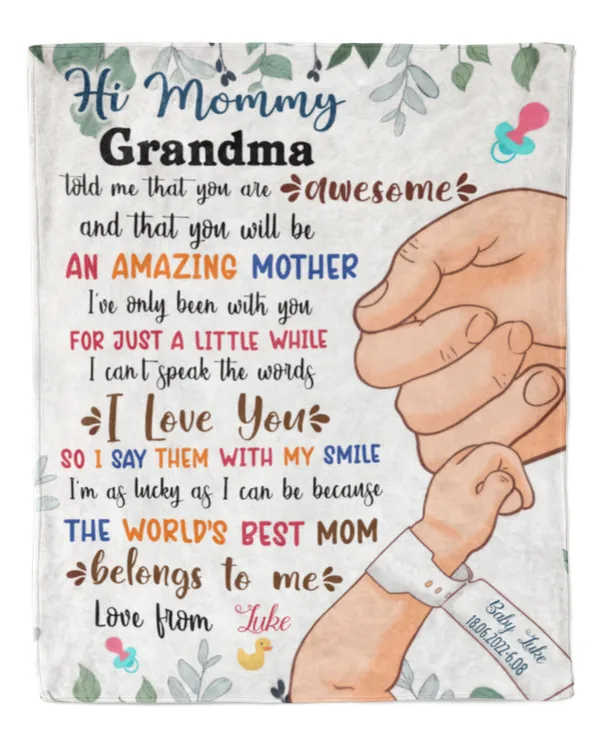 Hi Mommy
Grandma
told me that you are awesome
and that you will be
AN AMAZING MOTHER
I've only been with you
FOR JUST A LITTLE WHILE
I can't speak the words
I Love You
SO I SAY THEM WITH MY SMILE
I'm as lucky as I can be because
THE WORLD'S BEST MOM
belongs to me
Love from Luke
Baby Luke
18.06.2022-6.08